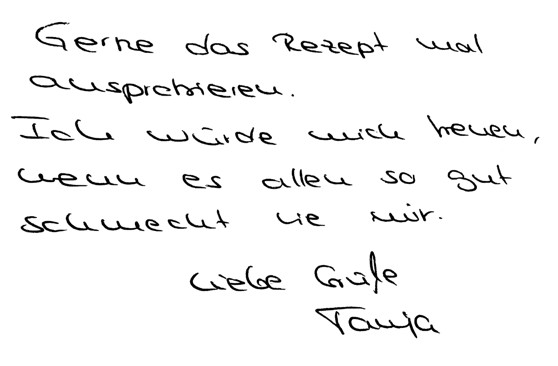 Gerne das Rezept mal
ausprobieren.
Ich würde mich freuen,
wenn es allen so gut
schmeckt wie mir.
Liebe Grüße
Tanja